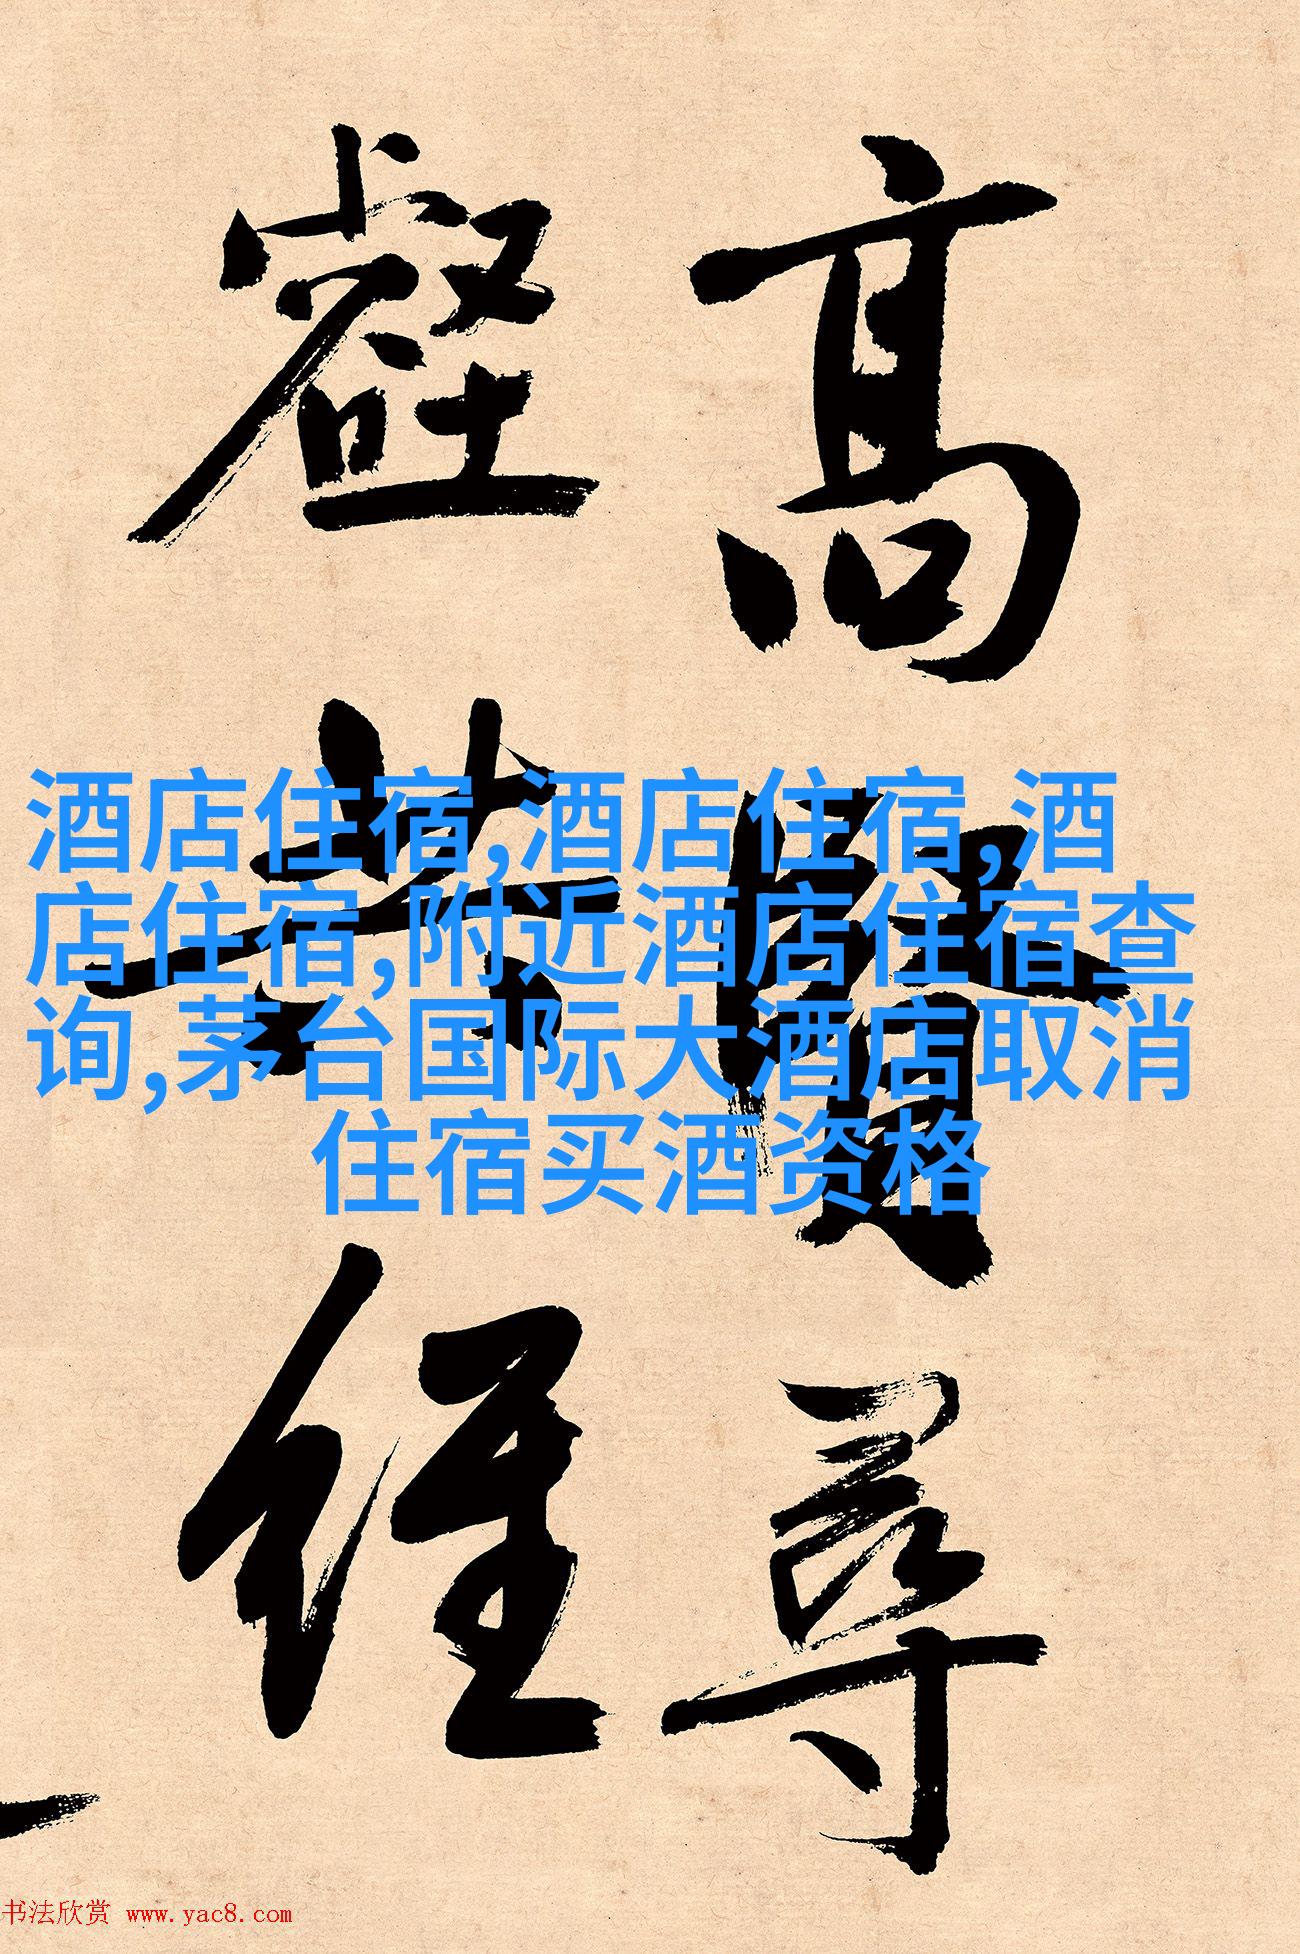 高賢尋
壑共經
酒店住宿,酒店住宿,酒
店住宿,附近酒店住宿查
询,茅台国际大酒店取消
住宿买酒资格
书法欣赏 www.yac8.com